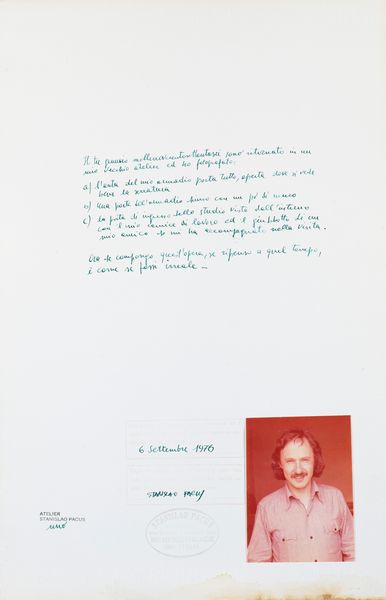 Il tre gennaio millenovecentosettantasei sono ritornato in un
mio vecchio atelier ed ho fotografato:
a) l'anta del mio armadio porta tutto, aperta dove si vede
bene la serratura
b) una parte dell'armadio stesso con un po' di muro
c) la porta di ingresso dello studio vista dall'interno
con il mio camice di lavoro ed il giubbotto di un
mio amico che mi ha accompagnato nella visita.
Ora che compongo quest'opera, se ripenso a quel tempo,
è come se fossi irreale –
6 Settembre 1976
STANISLAO PACUS
ATELIER
STANISLAO PACUS
uno
STANISLAO PACUS